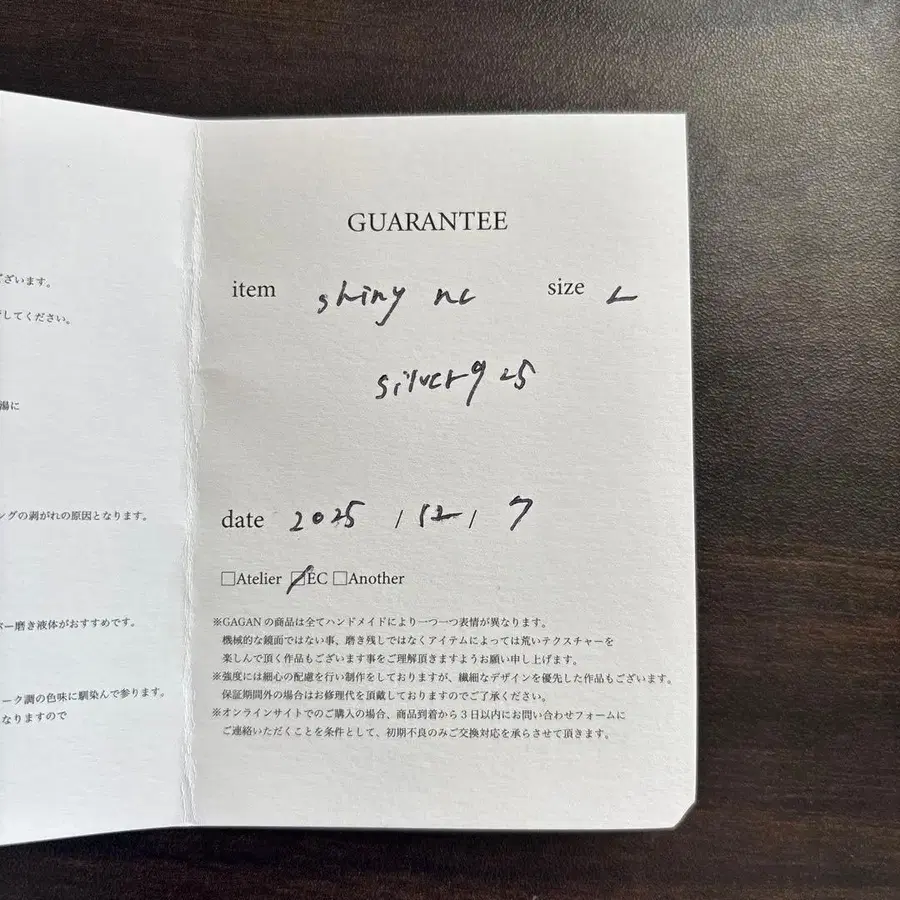 ございます。
してください。
湯に
ングの剥がれの原因となります。
バー磨き液体がおすすめです。
ーク調の色味に馴染んで参ります。
なりますので
GUARANTEE
item shiny nc size L
silver925
date 2025 / 12 / 7
□Atelier ☑EC □Another
※GAGANの商品は全てハンドメイドにより一つ一つ表情が異なります。
機械的な鏡面ではない事、磨き残しではなくアイテムによっては荒いテクスチャーを
楽しんで頂く作品もございます事をご理解頂きますようお願い申し上げます。
※強度には細心の配慮を行い制作をしておりますが、繊細なデザインを優先した作品もございます。
保証期間外の場合はお修理代を頂戴しておりますのでご了承ください。
※オンラインサイトでのご購入の場合、商品到着から3日以内にお問い合わせフォームに
ご連絡いただくことを条件として、初期不良のみご交換対応を承らさせて頂きます。